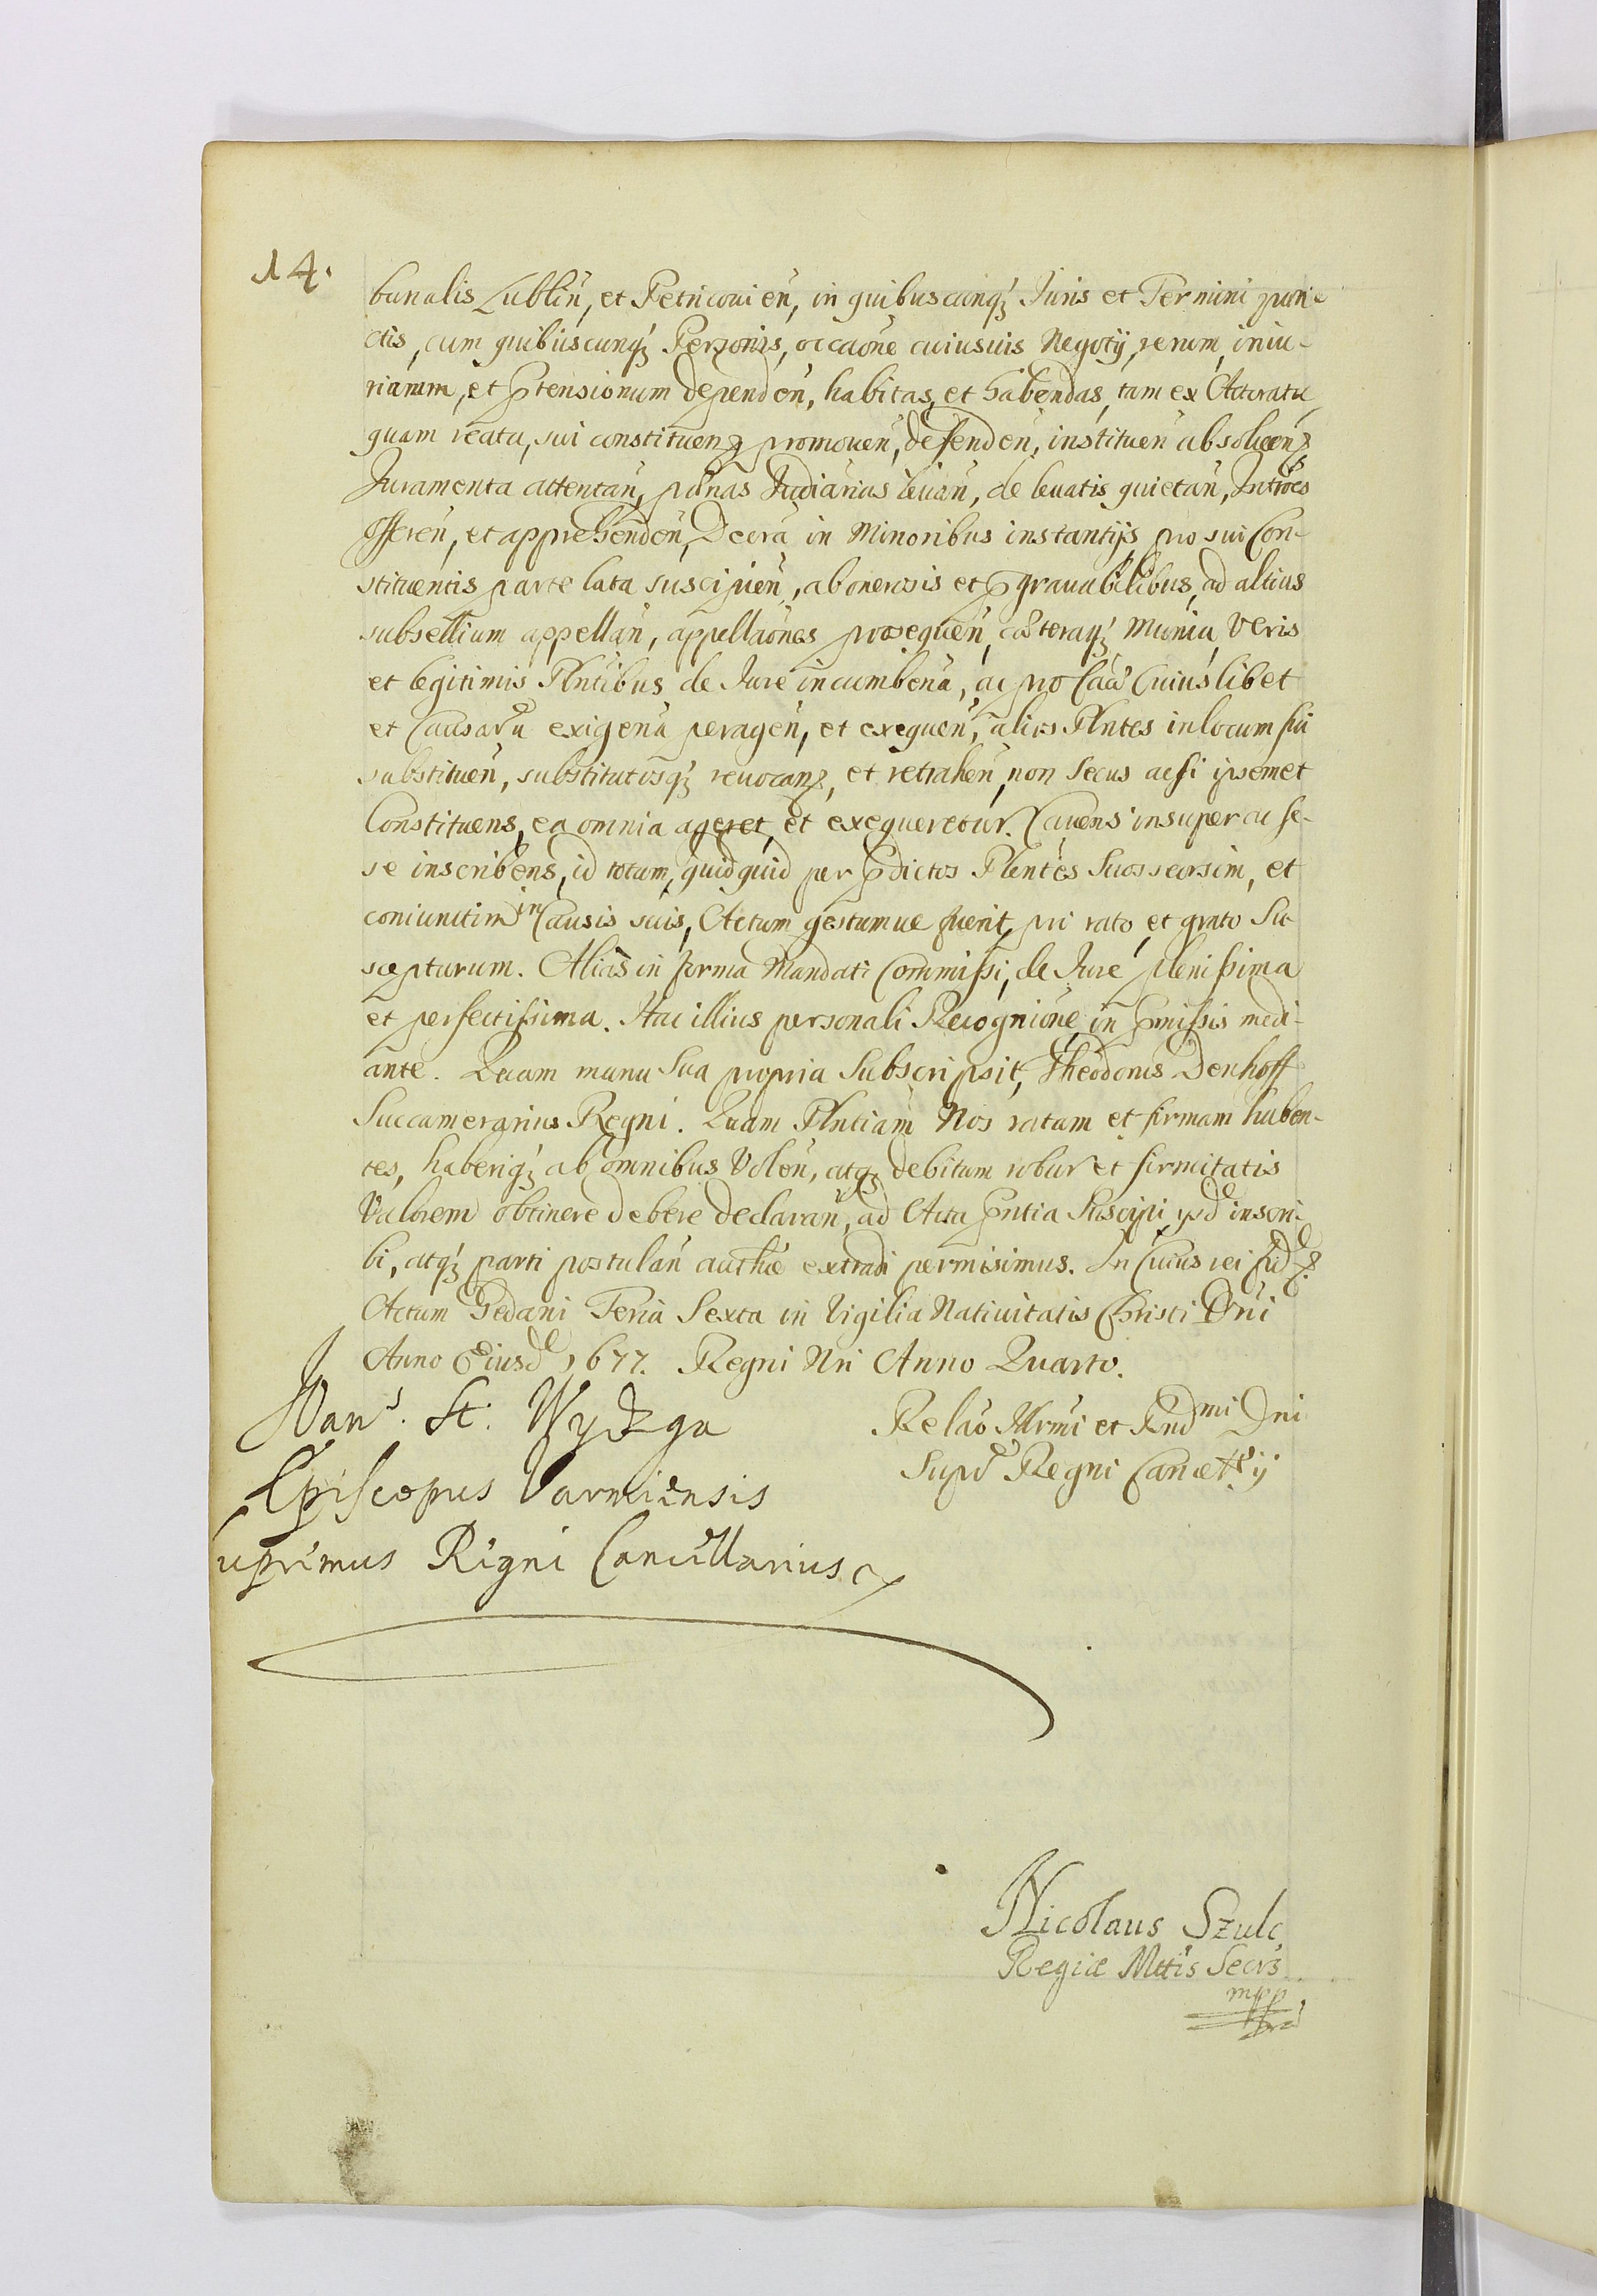 14.
bunalis Lubliń, et Petricouień, in quibuscunq̃ Juris et Termini pun-
ctis, cum quibuscunq̃ Personis, occãone cuiusuis Negotij, rerum, iniu-
riarum, et p̃tensionum dependeń, habitas, et habendas, tam ex Actoratu
quam reatu, sui constitueń promoueń, defendeń, instituerń absolueń
Juramenta attentań, pænas Judiarias leuań, de leuatis quietań, Intrões
Offereń, et apprehendeń, Decra in Minoribus instantijs pro sui Con-
stituentis parte lata suscipień, ab onerosis et p̃grauabilibus, ad altius
subsellium appellań, appellãones prosequeń, cæteraq̃ Munia, Veris
et legitimis Plñtibus de Jure incumbeña, ac pro Cãa Cuiuslibet
et Causarũ exigeña perageń, et exequeń, alios Plñtes in locum sui
substitueń, substitutosq̃ reuocań, et retraheń, non secus acsi ipsemet
Constituens, ea omnia ageret, et exequeretur. Cauens insuper ac se-
se inscribens, id totum, quidquid per p̃dictos Plentes Suos seorsim, et
coniunctim in Causis suis, Actum gestumue fuerit, pri rato, et grato Su-
scepturum. Alias in forma Mandati Commissi, de Jure plenissima
et perfectissima. Hac illius personali Recognitione, in p̃missis medi-
ante. Quam manu Sua propria Subscripsit, Theodorus Denhoff
Succamerarius Regni. Quam Plñtiam Nos ratam et firmam haben-
tes, haberiq̃ ab omnibus Voleń, atq̃ debitum robur et firmitatis
Valorem obtinere debere declarań, ad Acta p̃ntia Suscipi, ysd inscri-
bi, atq̃ parti postulań authæ extradi permisimus. In Cuius rei fid
Actum Gedani Feria Sexta in Vigilia Natiuitatis Christi Dñi
Anno Eiusd 1677. Regni Nri Anno Quarto.
Joan͛s. St. Wydzga
Episcopus Varmiensis
Supremus Regni Cancellarius
Relaõ Illrmi et Rnd͏mi Dni
Supr Regni Cancellrij
Nicolaus Szulc
Regiæ Mttis Secrs
mpp